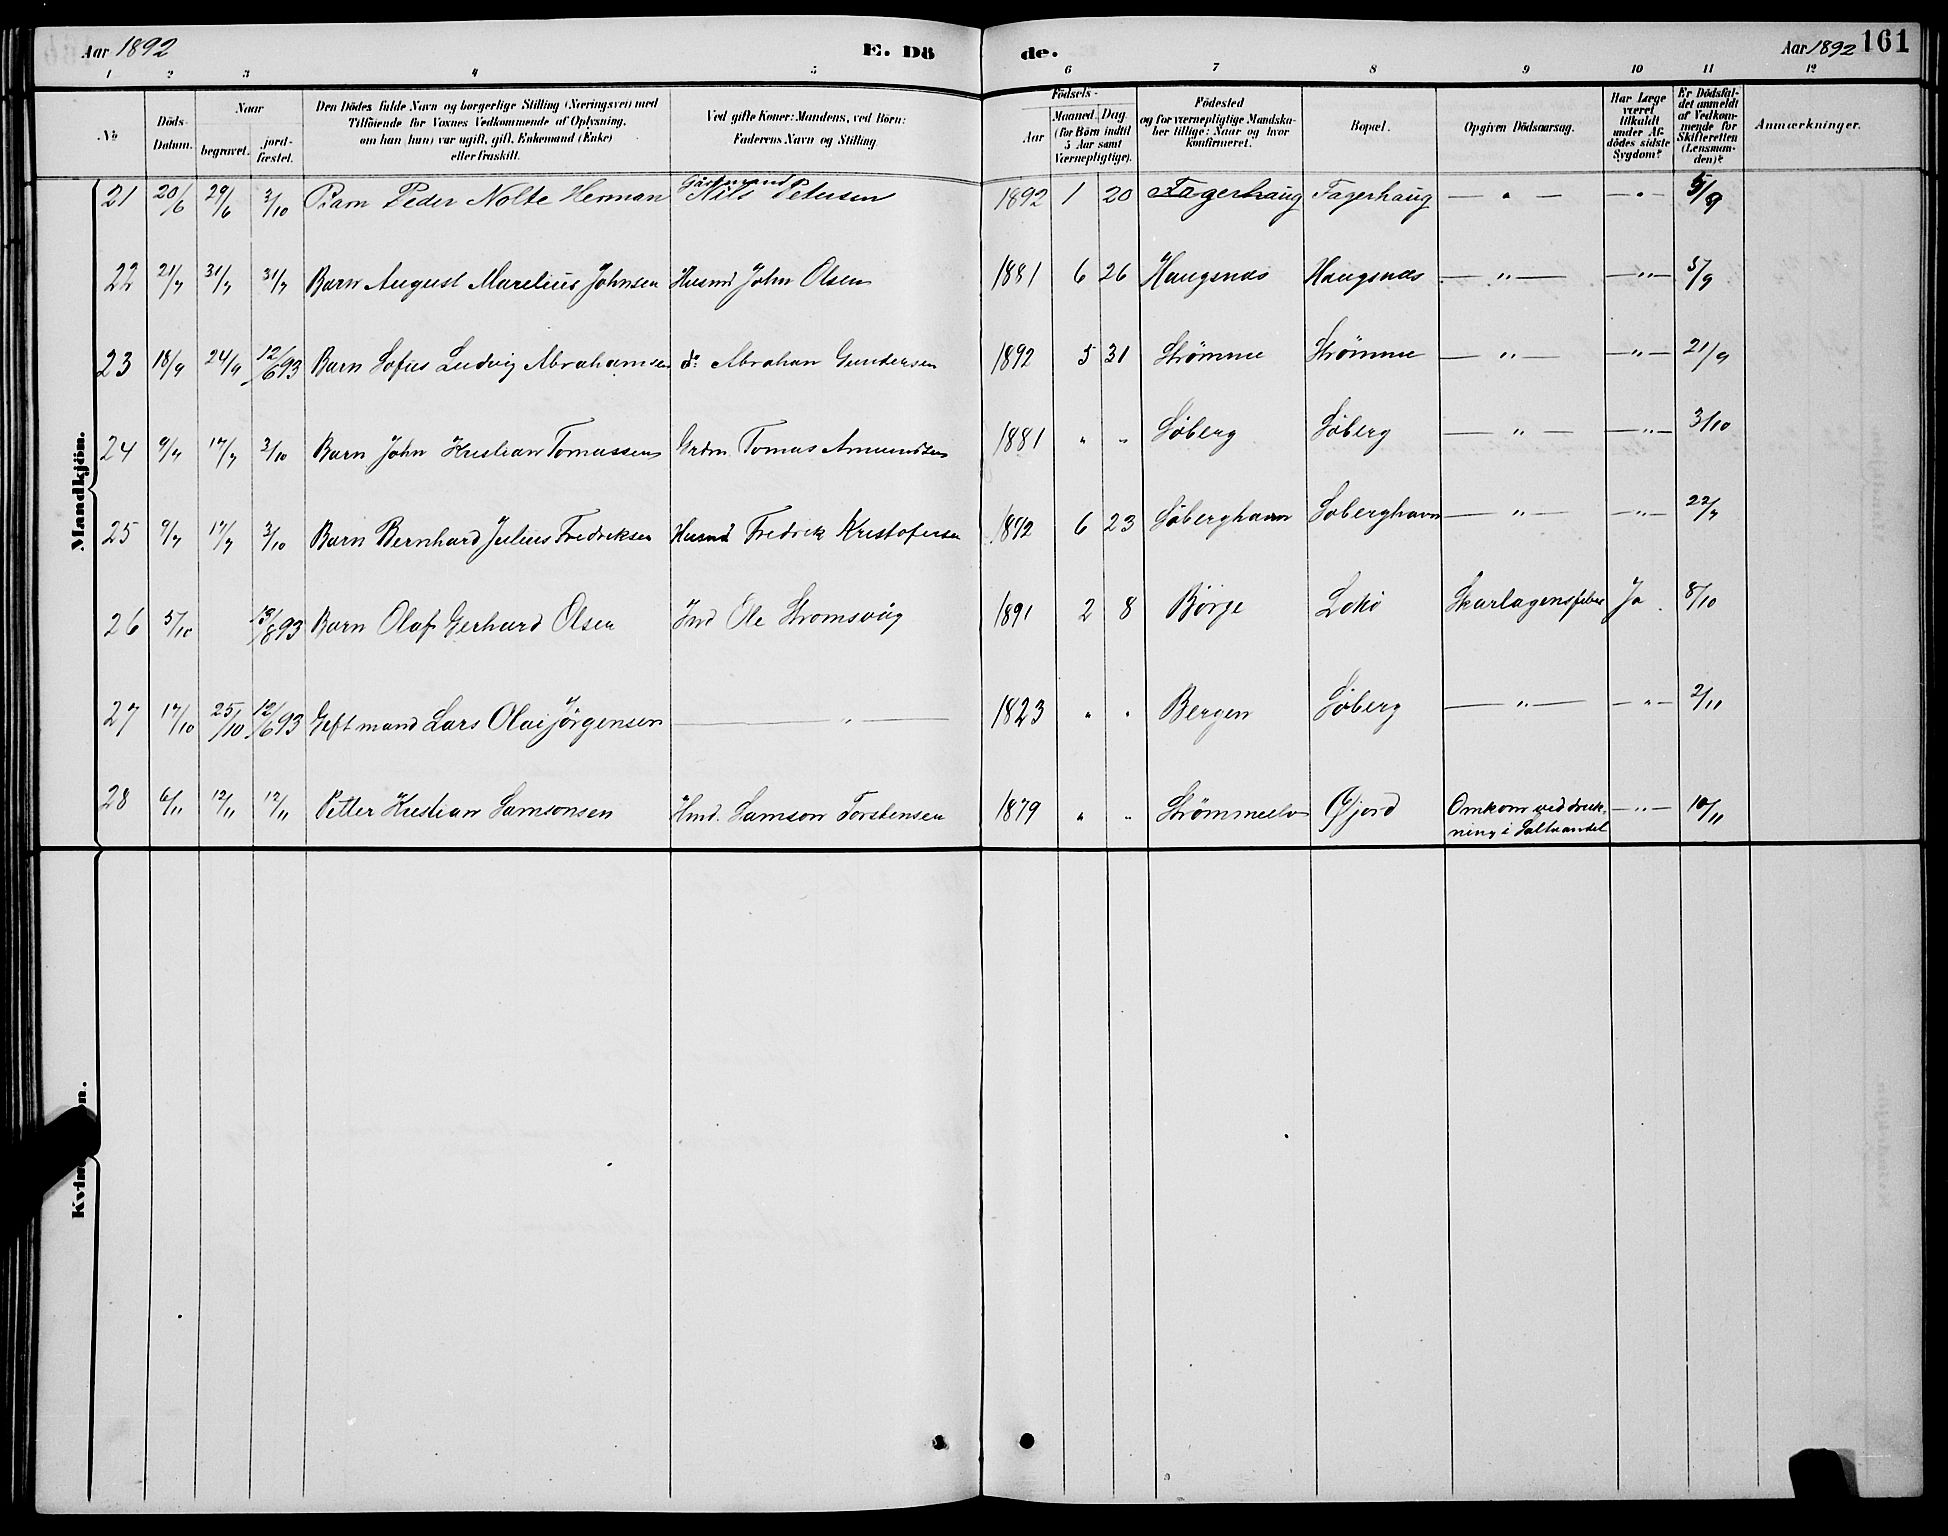 Aar 1892 E. Dö de. Aar 1892 161
1 2 3 4 5 6 7 8 9 10 11 12
No
Döds-Datum.
Naar
begravet.
jord-fæstet.
Den Dödes fulde Navn og borgerlige Stilling (Næringsvei) med
Tilföiende for Voxnes Vedkommende af Oplysning,
om han (hun) var ugift, gift, Enkemand (Enke)
eller fraskilt.
Ved gifte Koner: Mandens, ved Börn:
Faderens Navn og Stilling
Födsels-
Aar
Maaned. Dag
(for Börn indtil
5 Aar samt
Værnepligtige).
Födested
og for værnepligtige Mandska-
ber tillige: Naar og hvor
konfirmeret.
Bopæl.
Opgiven Dödsaarsag.
Har Læge
været
tilkaldt
under Af-
dödes sidste
Sygdom?
Er Dödsfal-
det anmeldt
af Vedkom-
mende for
Skifteretten
(Lensman-
den)?
Anmærkninger.
Mandkjön.
Gaardmand
21 20/6 29/6 3/10 Barn Peder Nolte Herman Nils Petersen 1892 1 20 Fagerhaug Fagerhaug — " — — " — 5/9
22 21/7 31/7 31/7 Barn August Marelius Johnsen Husmd John Olsen 1881 6 26 Haugsnæs Haugsnæs — " — — " — 5/9
23 18/9 24/9 12/6 93 Barn Sofus Ludvig Abrahamsen do Abraham Gundersen 1892 5 31 Strømme Strømme — " — — " — 21/9
24 9/7 17/7 3/10 Barn John Kristian Tomassen Grdm. Tomas Amundsen 1881 " " Söberg Söberg — " — — " — 3/10
25 9/7 17/7 3/10 Barn Bernhard Julius Fredriksen Husmd Fredrik Kristofersen 1892 6 23 Söberghavn Soberghavn — " — — " — 22/7
26 5/10 13/8 93 Barn Olaf Gerhard Olsen Ind Ole Stromsvig 1891 2 8 Börge Lokö Skarlagensfeber Ja. 8/10
27 17/10 25/10 12/6 93 Gift mand Lars Olai Jörgensen — " — 1823 " " Bergen Söberg — " — — " — 2/11
28 6/11 12/11 12/11 Petter Kristian Samsonsen Hmd. Samson Torstensen 1879 " " Strømmeelv Øfjord Omkom ved druk-
ning i Saltvandet — " — 10/11
Kvin
n.